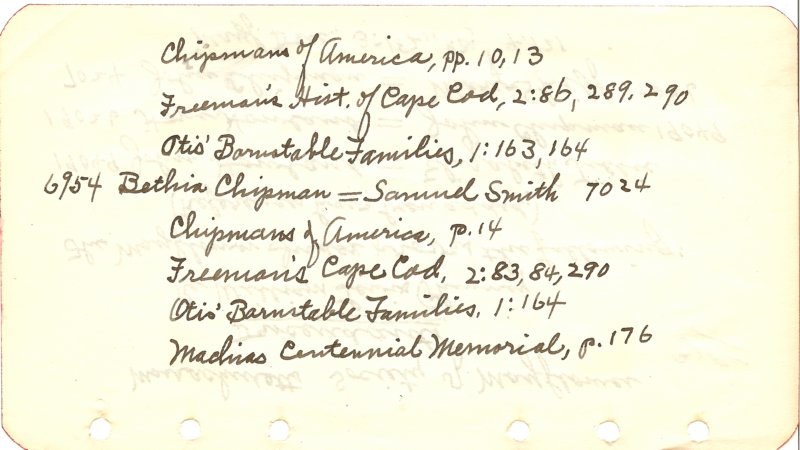 Chipmans of America, pp. 10, 13
Freeman's Hist. of Cape Cod, 2:86, 289, 290
Otis' Barnstable Families, 1:163, 164
6954 Bethia Chipman = Samuel Smith 7024
Chipmans of America, p. 14
Freeman's Cape Cod, 2:83, 84, 290
Otis' Barnstable Families, 1:164
Machias Centennial Memorial, p. 176